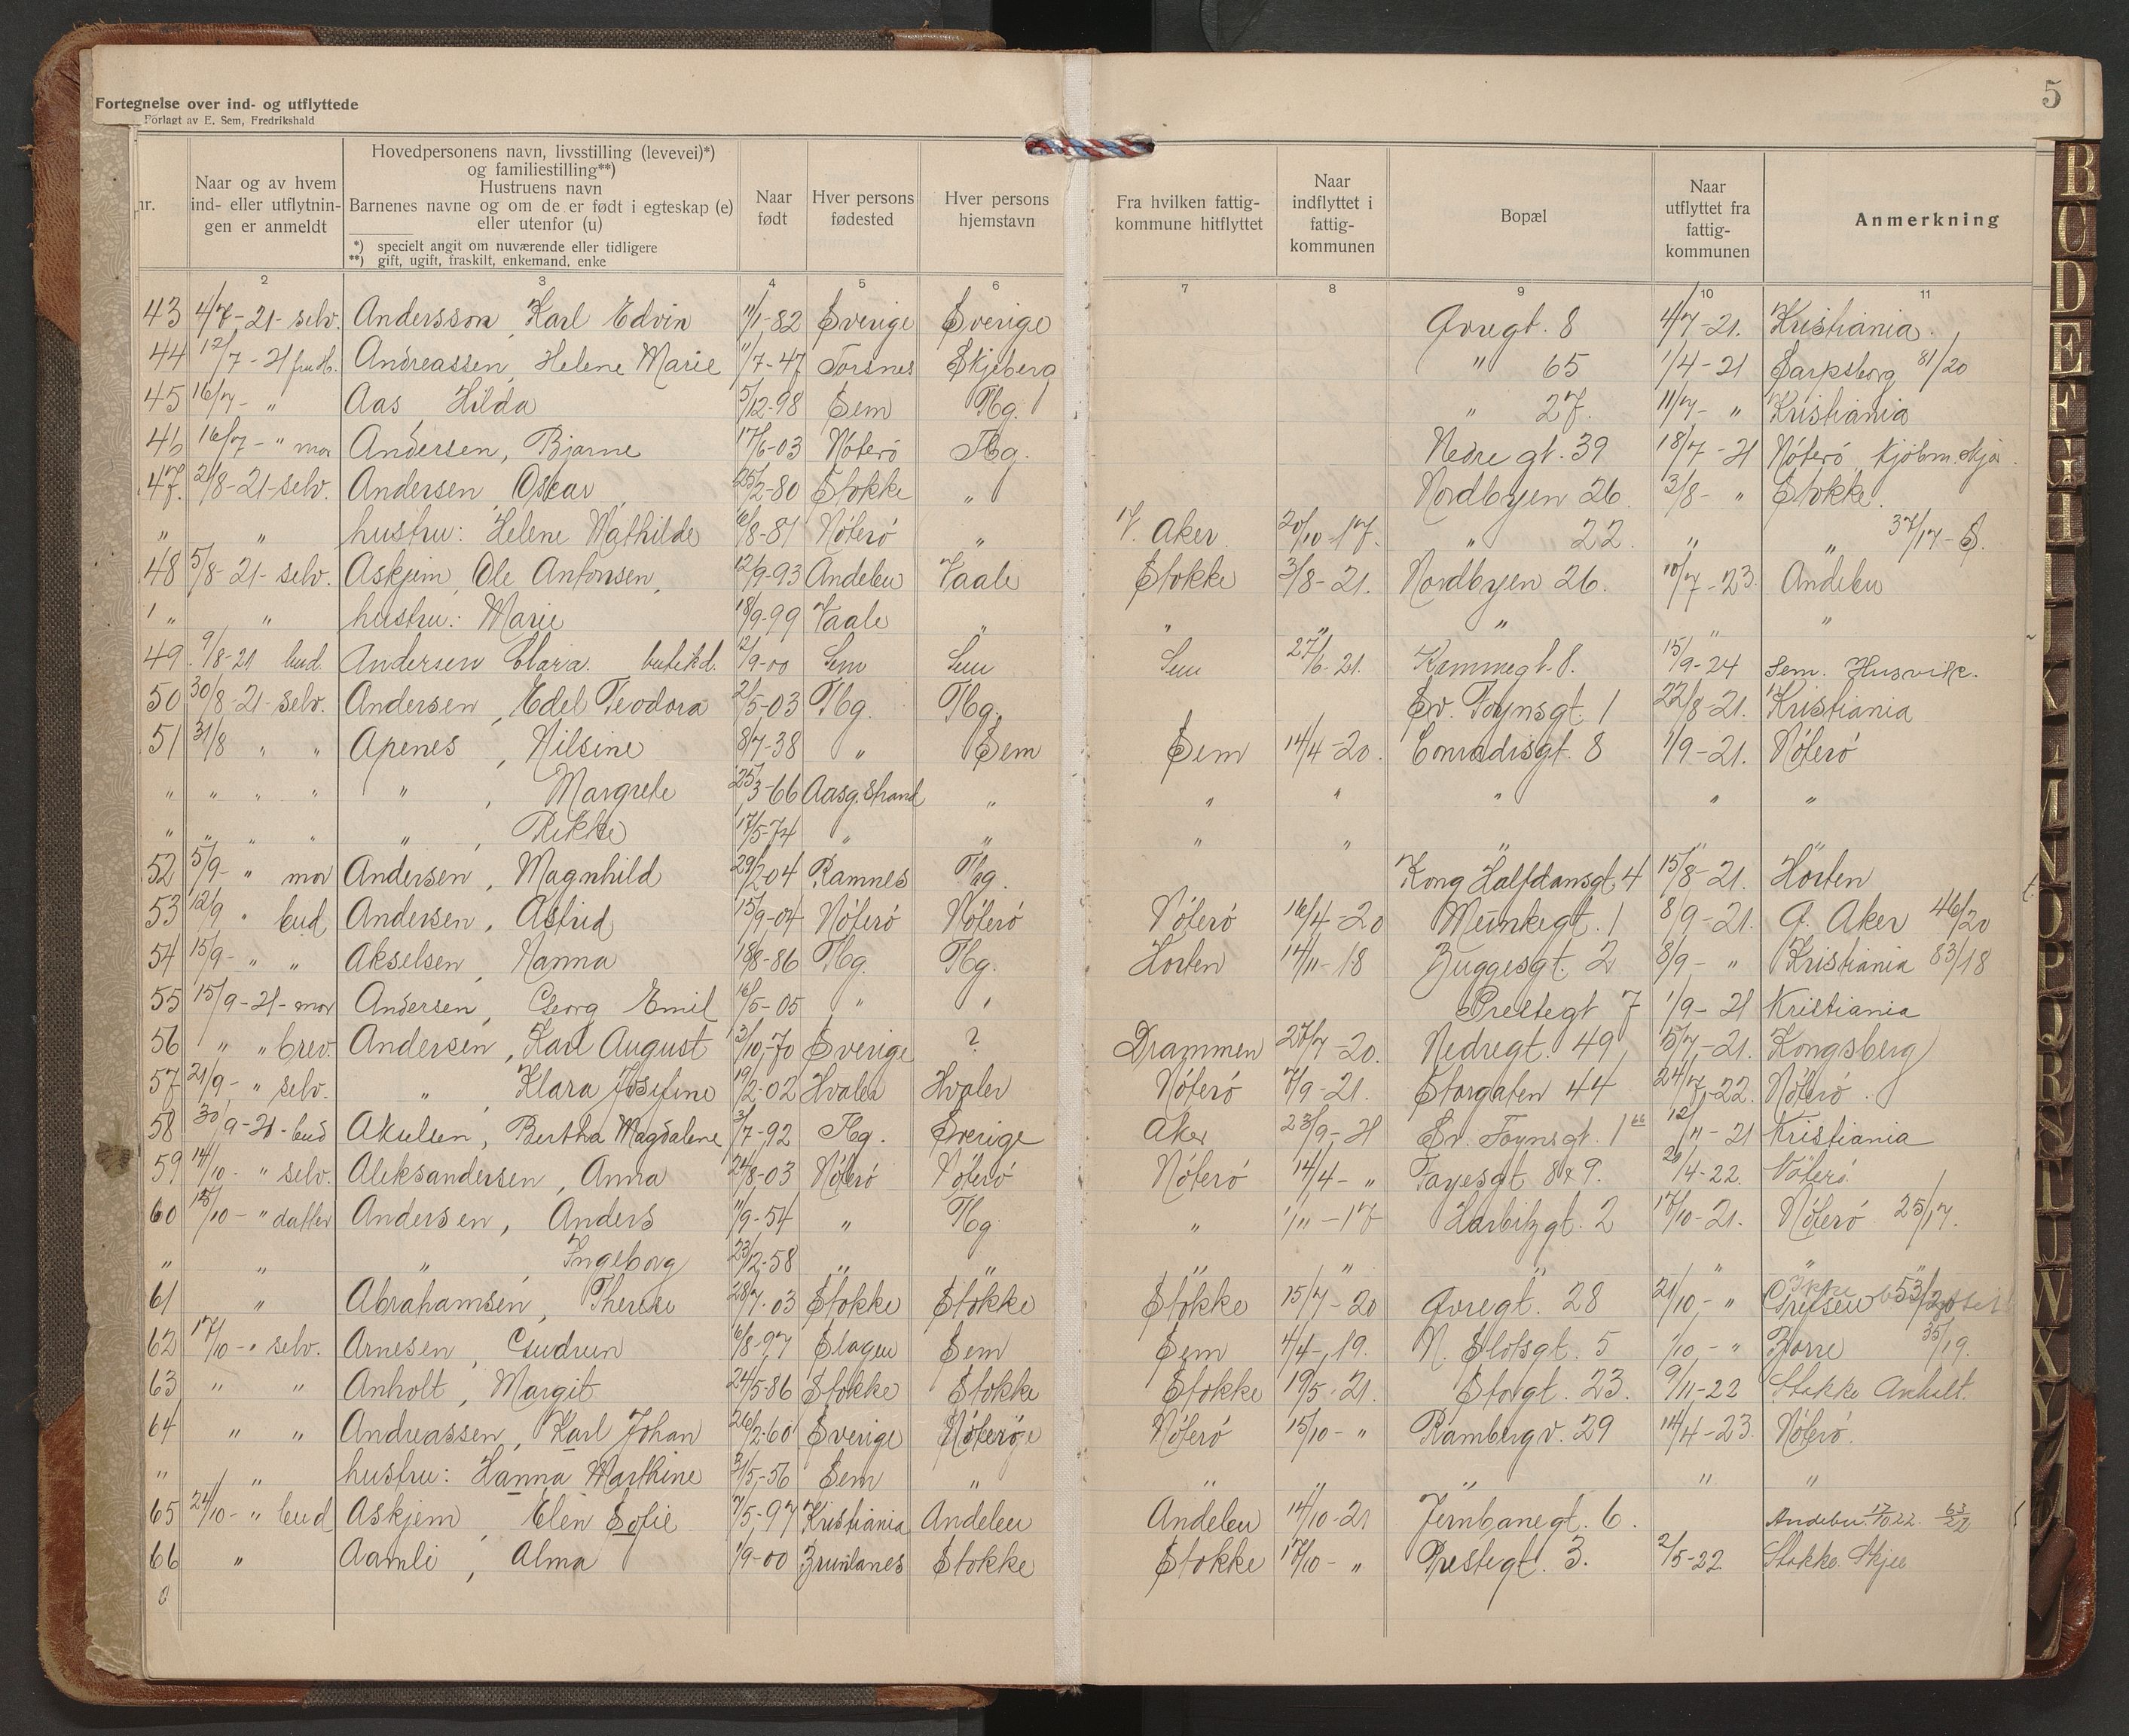 5
Fortegnelse over ind- og utflyttede
Forlagt av E. Sem, Fredrikshald
nr. | Naar og av hvem ind- eller utflytnin-gen er anmeldt | Hovedpersonens navn, livsstilling (levevei)*) og familiestilling**) Hustruens navn Barnenes navne og om de er født i egteskap (e) eller utenfor (u) *) specielt angit om nuværende eller tidligere **) gift, ugift, fraskilt, enkemand, enke | Naar født | Hver persons fødested | Hver persons hjemstavn | Fra hvilken fattig-kommune hitflyttet | Naar indflyttet i fattig-kommunen | Bopæl | Naar utflyttet fra fattig-kommunen | Anmerkning
2 3 4 5 6 7 8 9 10 11
43 4/7-21- selv. Andersson, Karl Edvin 11/1-82 Sverige Sverige Øvregt. 8 4/7-21. Kristiania.
44 12/7-21 Andreassen, Helene Marie 11/7-47 Torsnes Skjeberg " 65 1/4-21 Sarpsborg 81/20
45 16/7- " Aas Hilda 5/12-98 Sem Tbg. " 27. 11/7- " Kristiania
46 16/7- " mor Andersen, Bjarne 17/6-03 Nøterø Tbg. Nedre gt. 39 18/7-21 Nøterø
47. 2/8-21-selv. Andersen, Oskar 25/2-80 Stokke " Nordbyen 26. 3/8- " Stokke.
" " hustru: Helene Mathilde 6/8-81 Nøterø " V. Aker 20/10-17. " 22. " " 37/17-S.
48 5/8-21- selv. Askjem, Ole Antonsen, 12/9-93 Andebu Vaale Stokke 3/8-21. Nordbyen 26. 10/7-23. Andebu
" " hustru: Marie 18/9-99 Vaale " " " " " "
49. 9/8-21 bud. Andersen Clara. butikd. 12/9-00 Sem Sem Sem 27/6-21. Kammegt. 8. 15/9-24 Sem. Husvik.
50 30/8-21- selv. Andersen, Edel Teodora 2/5-03 Tbg. Tbg. Sv. Foynsgt. 1 22/8-21. Kristiania
51 31/8 " " Apenes, Nilsine 8/7-38 " Sem Sem 14/4-20. Conradisgt. 8 1/9-21. Nøterø
" " " " " , Margrete 25/3-66 Aasg.strand " " " " " "
" " " " " , Rikke 17/5-74 " " " " " "
52 5/9- " mor Andersen, Magnhild 29/2-04 Ramnes Tbg. Kong Halfdansgt. 4 15/8-21. Horten
53 12/9 " bud Andersen, Astrid 15/9-04 Nøterø Nøterø Nøterø 16/4-20 Meinkegt. 1 8/9-21. Ø. Aker 46/20
54 15/9- " " Akselsen, Nanna 18/8-86 Tbg. Tbg. Horten 14/11-18 Buggesgt. 2 8/9- " Kristiania 83/18
55 15/9-21-mor Andersen, Georg Emil 16/5-05 " " Prestegt 7 1/9-21 Kristiania
56 " " brev. Andersen, Karl August 13/10-70 Sverige ? Drammen 27/7-20. Nedregt. 49 5/7-21. Kongsberg
57 21/9- " selv. " , Klara Josefine 19/2-02 Hvaler Hvaler Nøterø 7/9-21. Storgaten 44 24/7-22. Nøterø.
58 30/9-21-bud Akulsen, Bertha Magdalene 3/7-92 Tbg. Sverige Aker 23/9-21 Sv. Foynsgt. 1 12/11-21 Kristiania
59 14/10- " selv. Aleksandersen, Anna 24/8-03 Nøterø Nøterø Nøterø 14/4- " Fayesgt 8 & 9. 20/4-22. Nøterø.
60 15/10- " datter Andersen, Anders 11/9-54 " Tbg " 1/11-17 Harbitzgt. 2 17/10-21. Nøterø 25/17.
" " " , Ingeborg 23/12-58 " " " " " " "
61 " Abrahamsen, Therese 28/7-03 Stokke Stokke Stokke 15/7-20 Øvregt. 28 21/10- " Grefsen 53/20
62 17/10- " selv. Arnesen, Gudrun 6/8-97 Slagen Sem Sem 4/4-19. N. Slotsgt. 5 1/10- " Borre 35/19.
63 " " Anholt, Margit 24/5-86 Stokke Stokke Stokke 19/5-21. Storgt. 23. 9/11-22 Stokke Anholt.
64 " " Andreassen, Karl Johan 26/2-60 Sverige Nøterø Nøterø 15/10- " Rambergv. 29 14/4-23. Nøterø.
" " hustru: Hanna Marthine 31/5-56 Sem " " " " " "
65 24/10- " bud Askjem, Elen Sofie 7/5-97 Kristiania Andebu Andebu 14/10-21 Jernbanegt. 6. Andebu 17/10 22. 63/22
66 " Aamli, Alma 1/9-00 Brunlanes Stokke Stokke 17/10- " Prestegt. 3. 2/5-22 Stokke. Skjee
B
C
D
E
F
G
H
I
K
L
M
N
O
P
Q
R
S
T
U
W
X
Y